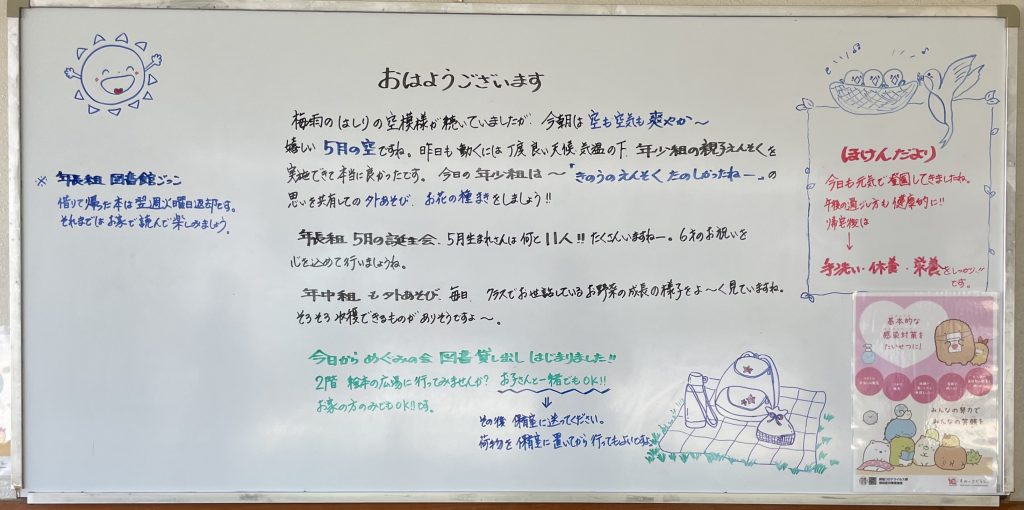 おはようございます
梅雨のはしりの空模様が続いていましたが、今朝は空も空気も爽やか〜
嬉しい5月の空ですね。昨日も動くには丁度良い天候、気温の下、年少組の親子えんそくを
実施できて本当に良かったです。今日の年少組は〜「きのうのえんそくたのしかったねー」の
思いを共有しての外あそび、お花の種まきをしましょう!!
※年長組 図書館ごっこ
借りて帰った本は翌週火曜日返却です。
それまではお家で読んで楽しみましょう。
年長組 5月の誕生会、5月生まれさんは何と11人!!たくさんいますねー。6才のお祝いを
心を込めて行いましょうね。
年中組も外あそび、毎日、クラスでお世話しているお野菜の成長の様子をよ〜く見ていますね。
そろそろ収穫できるものがありそうですよ〜。
今日から めぐみの会 図書貸し出し はじまりました!!
2階 絵本の広場に行ってみませんか? お子さんと一緒でもOK!!
お家の方のみでもOK!!です。
その後 保育室に送ってください。
荷物を保育室に置いてから行ってもよいですよ。
ほけんだより
今日も元気で登園してきましたね。
午後の過ごし方も健康的に!!
帰宅後は
手洗い・休養・栄養をしっかり!!
です。
基本的な
感染対策を
たいせつに!
みんなの努力で
みんなの笑顔を